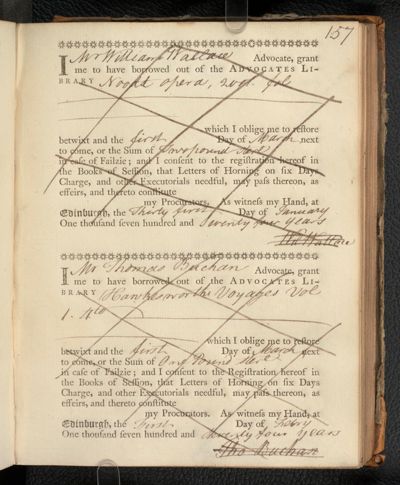 157
I Mr William Wallace Advocate, grant
me to have borrowed out of the ADVOCATES LI-
BRARY Noodt opera, 2 vol. fol
which I oblige me to reſtore
betwixt and the first Day of March next
to come, or the Sum of Two pound Sterl
in caſe of Failzie; and I conſent to the regiſtration hereof in
the Books of Seſſion, that Letters of Horning on ſix Days
Charge, and other Executorials needful, may paſs thereon, as
effeirs, and thereto conſtitute
my Procurators. As witneſs my Hand, at
Edinburgh, the Thirty first Day of January
One thouſand ſeven hundred and Seventy four years
Wm Wallace
I Mr Thomas Buchan Advocate, grant
me to have borrowed out of the ADVOCATES LI-
BRARY Hawkesworths Voyages Vol
1. 4to
which I oblige me to reſtore
betwixt and the first Day of March next
to come, or the Sum of One Pound Sterl
in caſe of Failzie; and I conſent to the Regiſtration hereof in
the Books of Seſſion, that Letters of Horning on ſix Days
Charge, and other Executorials needful, may paſs thereon, as
effeirs, and thereto conſtitute
my Procurators. As witneſs my Hand, at
Edinburgh, the First Day of Febry
One thouſand ſeven hundred and Seventy four years
Tho Buchan